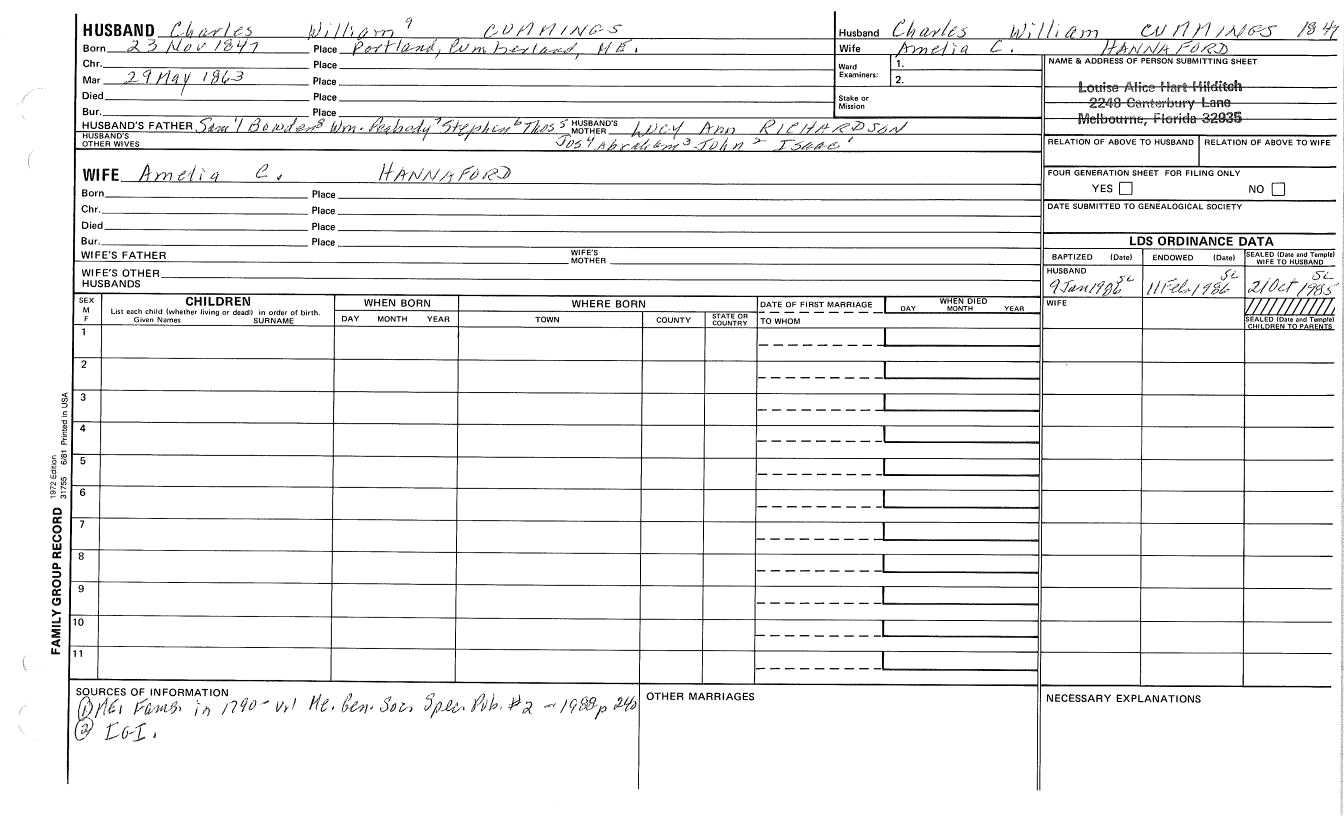 HUSBAND Charles William 9 CUMMINGS
Born 23 Nov 1847 Place Portland, Cumberland, ME.
Chr. Place
Mar 29 May 1863 Place
Died Place
Bur. Place
HUSBAND'S FATHER Sam'l Bowden 8 Wm. Peabody 7 Stephen 6 Thos 5 HUSBAND'S MOTHER Lucy Ann RICHARDSON
HUSBAND'S OTHER WIVES Jos 4 Abraham 3 John 2 Isaac 1
WIFE Amelia C. HANNAFORD
Born Place
Chr. Place
Died Place
Bur. Place
WIFE'S FATHER WIFE'S MOTHER
WIFE'S OTHER HUSBANDS
Husband Charles William CUMMINGS 1847
Wife Amelia C. HANNAFORD
Ward Examiners: 1.
2.
Stake or Mission
NAME & ADDRESS OF PERSON SUBMITTING SHEET
Louise Alice Hart Hilditch
2248 Canterbury Lane
Melbourne, Florida 32935
RELATION OF ABOVE TO HUSBAND RELATION OF ABOVE TO WIFE
FOUR GENERATION SHEET FOR FILING ONLY
YES NO
DATE SUBMITTED TO GENEALOGICAL SOCIETY
LDS ORDINANCE DATA
BAPTIZED (Date) ENDOWED (Date) SEALED (Date and Temple) WIFE TO HUSBAND
HUSBAND
9 Jan 1986 SL 11 Feb 1986 SL 21 Oct 1985 SL
WIFE
SEALED (Date and Temple) CHILDREN TO PARENTS
SEX M F CHILDREN WHEN BORN WHERE BORN DATE OF FIRST MARRIAGE WHEN DIED
List each child (whether living or dead) in order of birth.
Given Names SURNAME DAY MONTH YEAR TOWN COUNTY STATE OR COUNTRY TO WHOM DAY MONTH YEAR
1
2
3
4
5
6
7
8
9
10
11
FAMILY GROUP RECORD 1972 Edition 31755 6/81 Printed in USA
SOURCES OF INFORMATION
① ME. Fams. in 1790 - Me. Gen. Soc. Spec. Pub. #2 - 1988 p 240
② IGI.
OTHER MARRIAGES
NECESSARY EXPLANATIONS